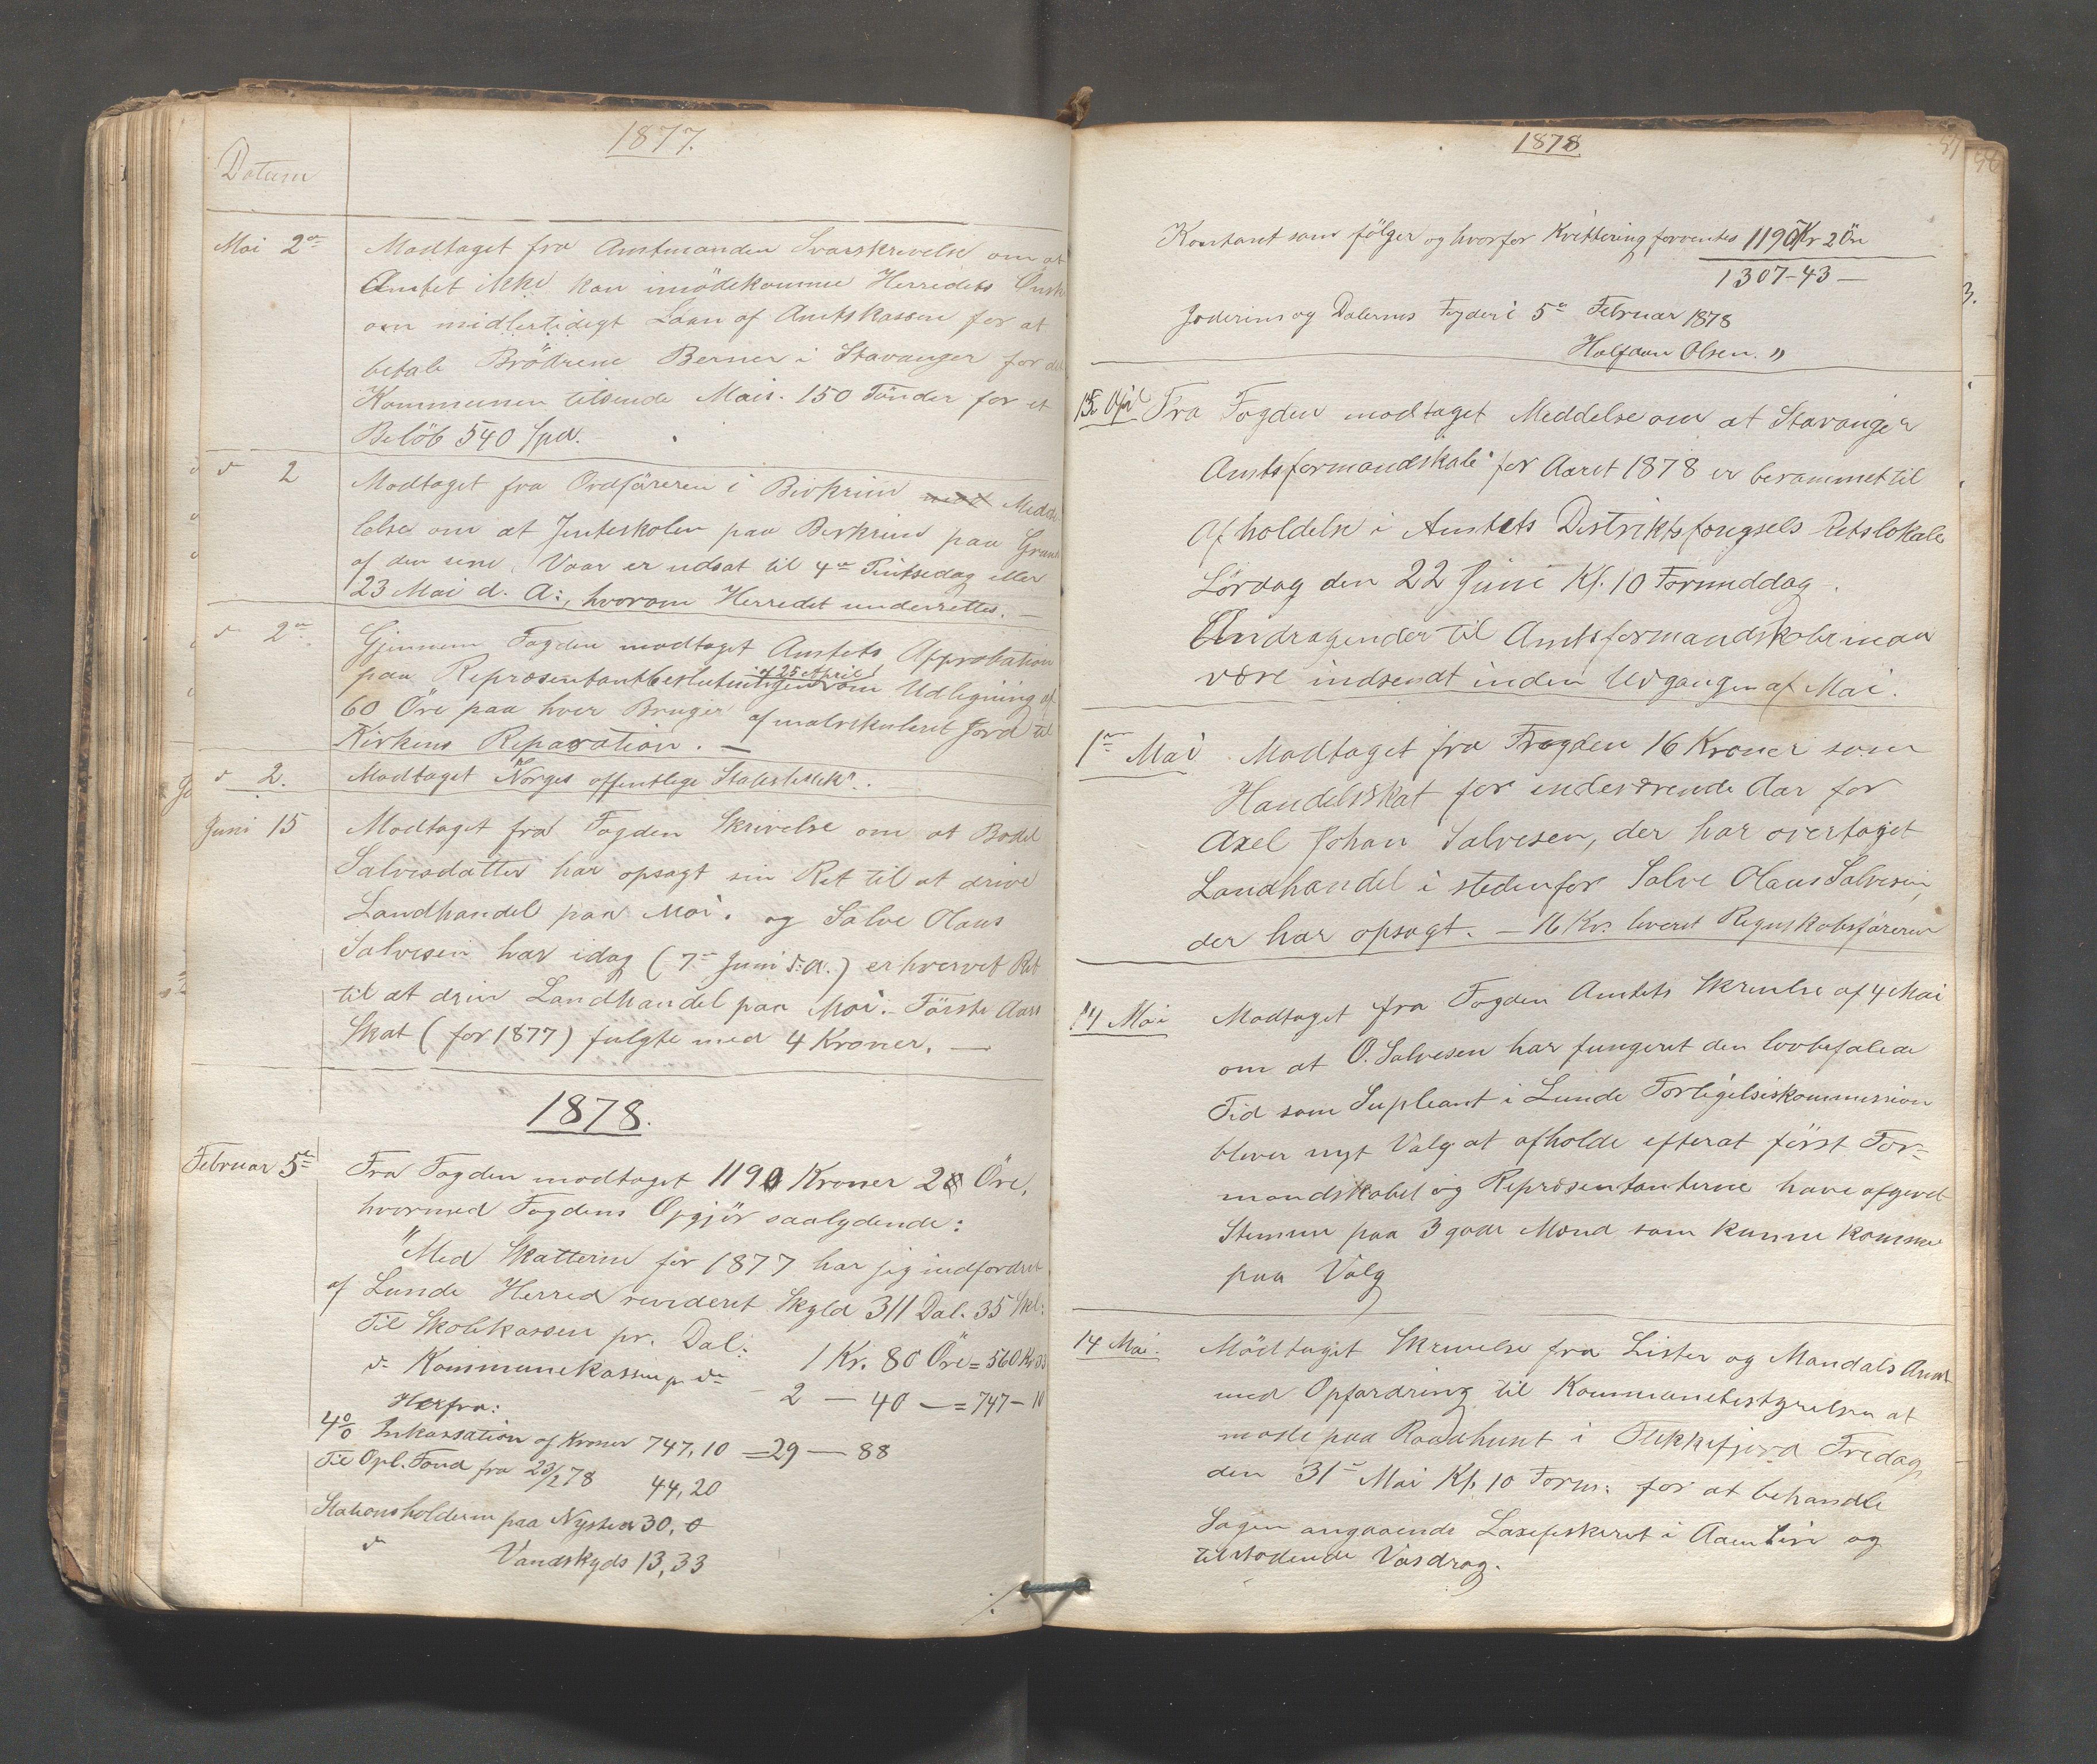 1877.
Datum
Mai 2en Modtaget fra Amtmanden Svarskrivelse om at
Amtet ikke kan imödekomme Herredets Önske
om midlertidigt Laan af Amtskassen for at
betale Brödrene Berner i Stavanger for de
Kommunen tilsende Mais. 150 Tönder for et
Belöb 540 Spd.
d 2 Modtaget fra Ordföreren i Birkrim Medde
lelse om at Jenteskolen paa Birkrim paa Grund
af den sene Vaar er udsat til 4de Pintsedag eller
23 Mai d. A:, hvorom Herredet underrettes. —
d 2en Gjennem Fogden modtaget Amtets Approbation
af 25 April
paa Repræsentantbeslutningen om Udligning af
60 Öre paa hver Bruger af matrikuleret Jord til
Kirkens Reparation. —
d 2. Modtaget "Norges offentlige Statestestik".
Juni 15 Modtaget fra Fogden Skrivelse om at Bodel
Salvesdatter har opsagt sin Ret til at drive
Landhandel paa Moi. og Salve Olaus
Salvesen har idag (7de Juni d.A.) erhvervet Ret
til at drive Landhandel paa Moi. Förste Aars
Skat (for 1877) fulgte med 4 Kroner. —
1878.
Februar 5te Fra Fogden modtaget 1190 Kroner 2 Öre,
hvormed Fogdens Opgjör saalydende:
"Med Skatterne for 1877 har jeg indfordret
af Lunde Herred revideret Skyld 311 Dal. 35 Skl:
Til Skolekassen pr. Dal: 1 Kr. 80 Öre = 560 Kr 33
d Kommunekassen pr d — 2 — 40 — = 747 — 10
Herfra:
4 0/0 Inkassation af Kroner 747,10 = 29 — 88
Til Opl. Fond fra 23/2 78 44,20
Stationsholderen paa Nysted 30, 0
d Vandskyds 13,33
./.
1878
Kontant som fölger og hvorfor Kvittering forventes 1190 Kr 2 Öre
1307-43 —
Jæderens og Dalernes Fogderi 5te Februar 1878
Halfdan Olsen. "
15 Apr Fra Fogden modtaget Meddelse om at Stavanger
Amtsformandskab for Aaret 1878 er berammet til
Afholdelse i Amtets Distriktsfængsels Retslokale
Lördag den 22 Juni Kl. 10 Formiddag.
Andragender til Amtsformandskabet maa
være indsendt inden Udgangen af Mai.
1en Mai Modtaget fra Fogden 16 Kroner som
Handelsskat for indeværende Aar for
Axel Johan Salvesen, der har overtaget
Landhandel i stedenfor Salve Olaus Salvesen,
der har opsagt. — 16 Kr. leveret Regnskabsföreren
14 Mai Modtaget fra Fogden Amtets Skrivelse af 4 Mai
om at O. Salvesen har fungeret den lovbefalede
Tid som Supleant i Lunde Forligelseskommission
bliver nyt Valg at afholde efterat först For-
mandskabet og Repræsentanterne have afgivet
Stemme paa 3 gode Mænd som kunne komme
paa Valg
14 Mai. Modtaget Skrivelse fra Lister og Mandals Amt
med Opfordring til Kommunebestyrelsen at
møde paa Raadhuset i Flekkefjord Fredag
den 31te Mai Kl. 10 Form: for at behandle
Sagen angaaende Laxefiskeriet i Aaen Sire og
tilstødende Vasdrag.